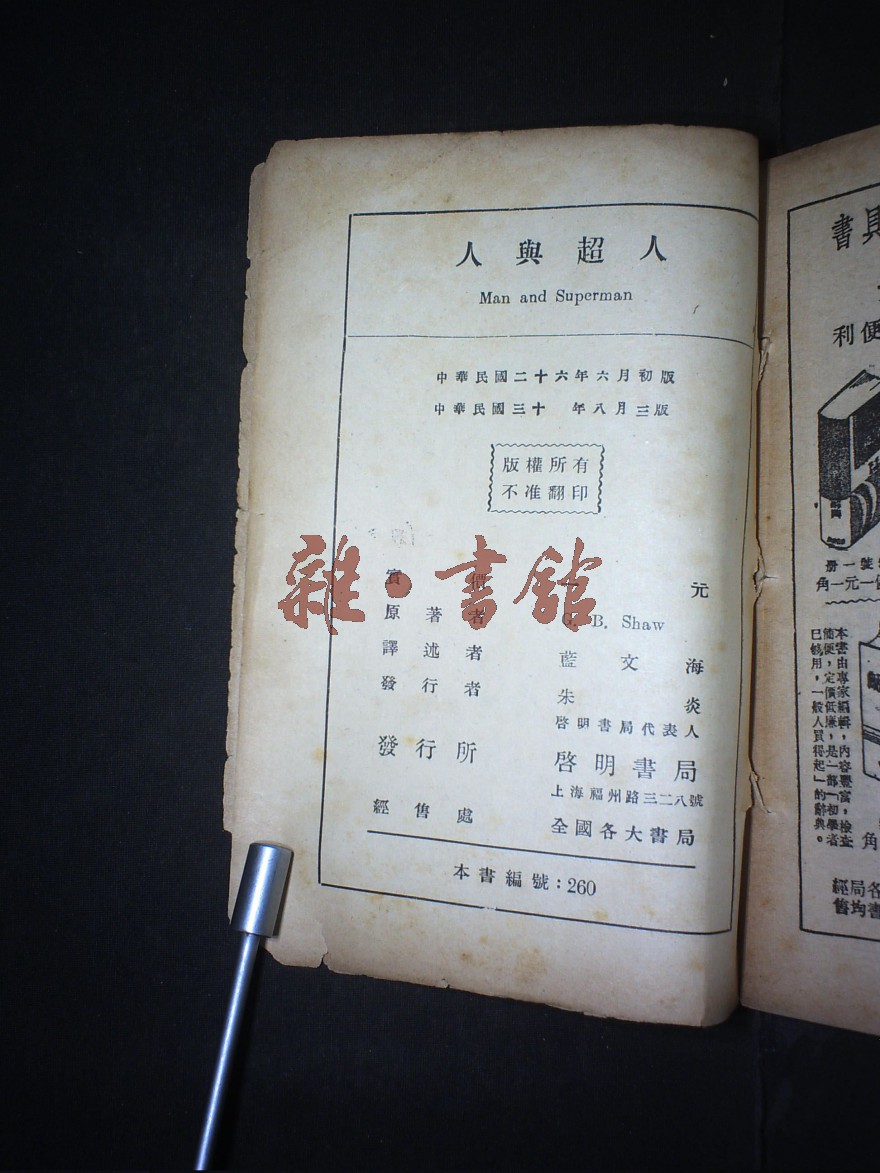 人與超人
Man and Superman
中華民國二十六年六月初版
中華民國三十 年八月三版
版權所有
不准翻印
雜·書館
實 元
原著者 G. B. Shaw
譯述者 藍文海
發行者 朱炎
啓明書局代表人
發行所 啓明書局
上海福州路三二八號
經售處 全國各大書局
本書編號:260
書
利便
冊一號
角一元一
本書由專家編輯,內容豐富,檢查
簡便,定價低廉,是一部初學者
已够用,一般人買得起的辭典。
角
經局各
售均書